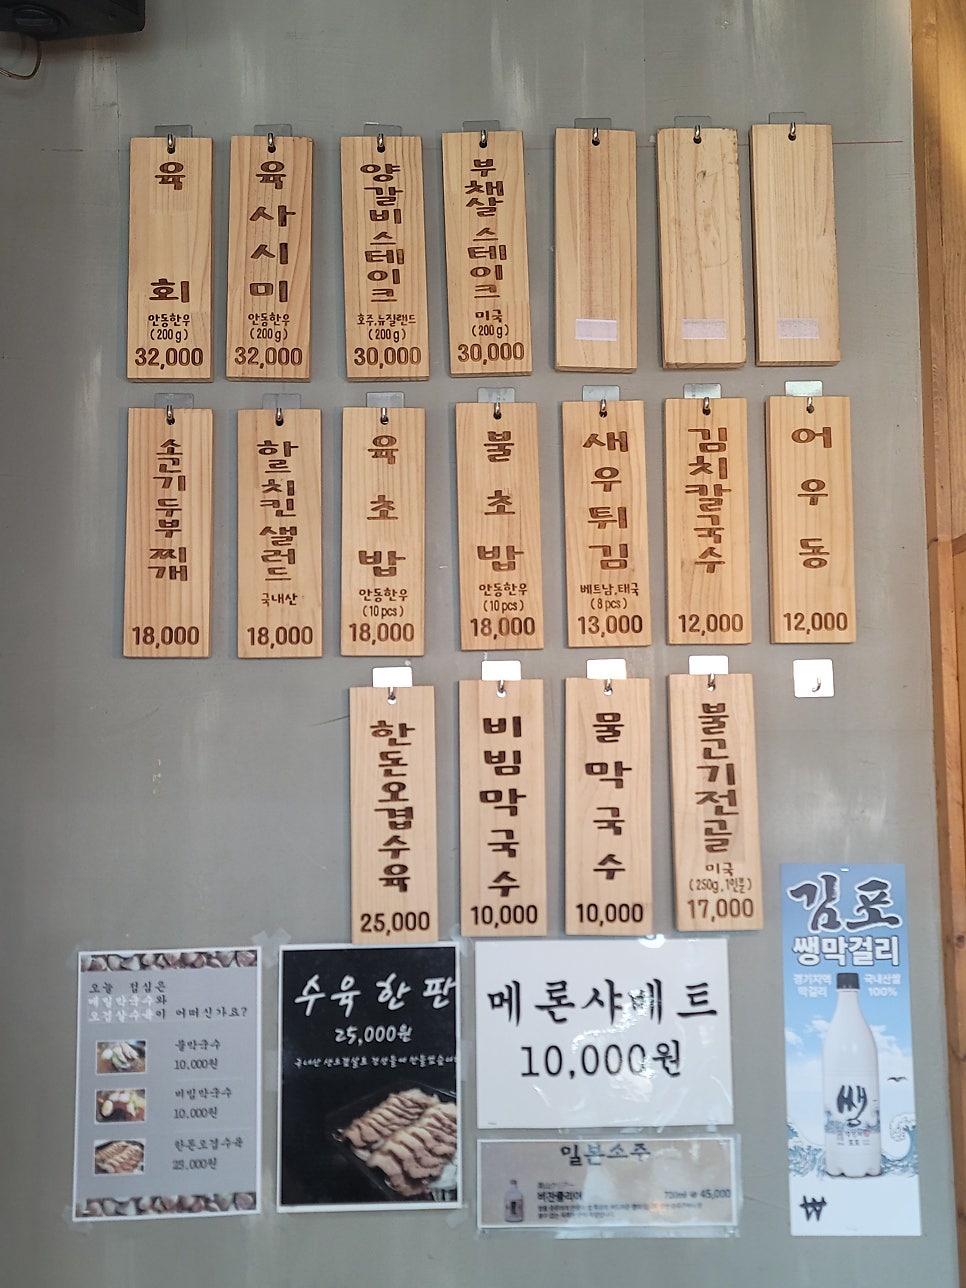 육회
안동한우
(200g)
32,000
육사시미
안동한우
(200g)
32,000
양갈비스테이크
호주,뉴질랜드
(200g)
30,000
부채살스테이크
미국
(200g)
30,000
소고기두부찌개
18,000
할르치킨샐러드
국내산
18,000
육초밥
안동한우
(10pcs)
18,000
불초밥
안동한우
(10pcs)
18,000
새우튀김
베트남,태국
(8pcs)
13,000
김치칼국수
12,000
어우동
12,000
한돈오겹수육
25,000
비빔막국수
10,000
물막국수
10,000
불고기전골
미국
(250g,1인분)
17,000
오늘 점심은
메밀막국수와
오겹살수육이 어떠신가요?
물막국수
10,000원
비빔막국수
10,000원
한돈오겹수육
25,000원
수육한판
25,000원
메론샤베트
10,000원
일본소주
버잔클리어
700ml ₩ 45,000
김포
쌩막걸리
경기지역
막걸리
국내산쌀
100%
쌩
₩